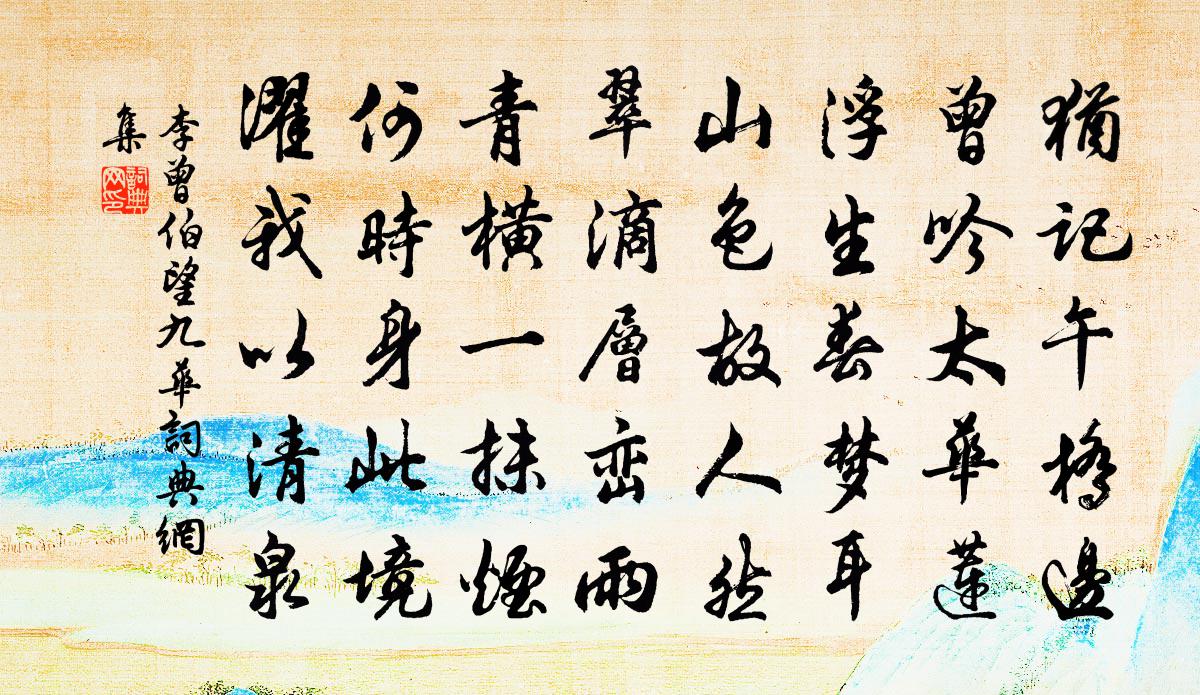 猶記午橋邊
曾吟太華蓮
浮生春梦耳
山色故人然
翠滴層巒雨
青橫一抹煙
何時身此境
濯我以清泉
李曾伯望九華詞典網
集
詞典
网印